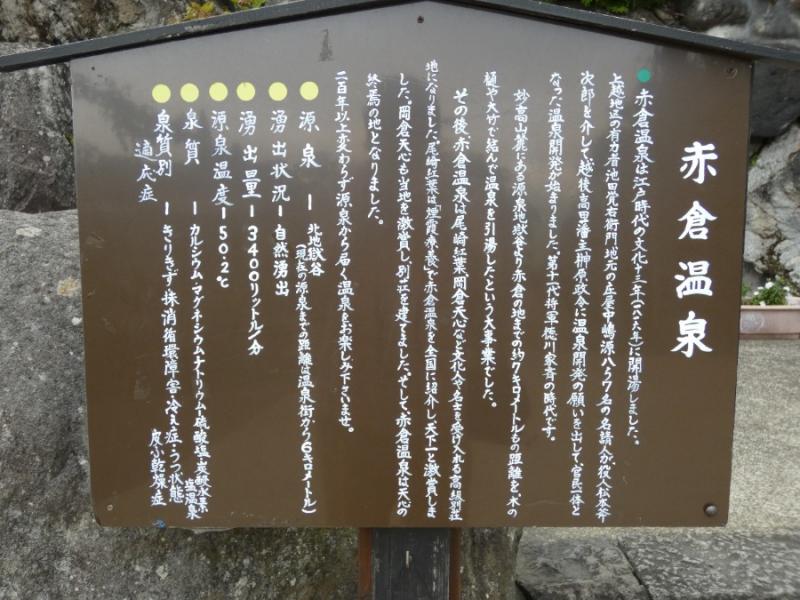 赤倉温泉
赤倉温泉は江戸時代の文化十三年(一八一六年)に開湯しました。
上越地区の有力者池田覚右衛門、地元の庄屋中嶋源八ら7名の名請人が役人松本斧
次郎を介して越後高田藩主榊原政令に温泉開発の願いを出して、官民一体と
なった温泉開発が始まりました。第十一代将軍徳川家斉の時代です。
妙高山麓にある源泉地獄谷より赤倉の地までの約7キロメートルもの距離を、木の
樋や大竹で結んで温泉を引湯したという大事業でした。
その後赤倉温泉は尾崎紅葉、岡倉天心など文化人や名士を受け入れる高級別荘
地になりました。尾崎紅葉は「煙霞療養」で赤倉温泉を全国に紹介し天下一と激賞しま
した。岡倉天心も当地を激賞し、別荘を建てました。そして、赤倉温泉は天心の
終焉の地となりました。
二百年以上変わらず源泉から届く温泉をお楽しみ下さいませ。
源泉ー北地獄谷
(現在の源泉までの距離は温泉街から6キロメートル)
湧出状況ー自然湧出
湧出量ー3400リットル/分
源泉温度ー50.2℃
泉質ーカルシウム・マグネシウム・ナトリウムー硫酸塩・炭酸水素
塩温泉
泉質別
適応症ーきりきず・抹消循環障害・冷え症・うつ状態
皮ふ乾燥症